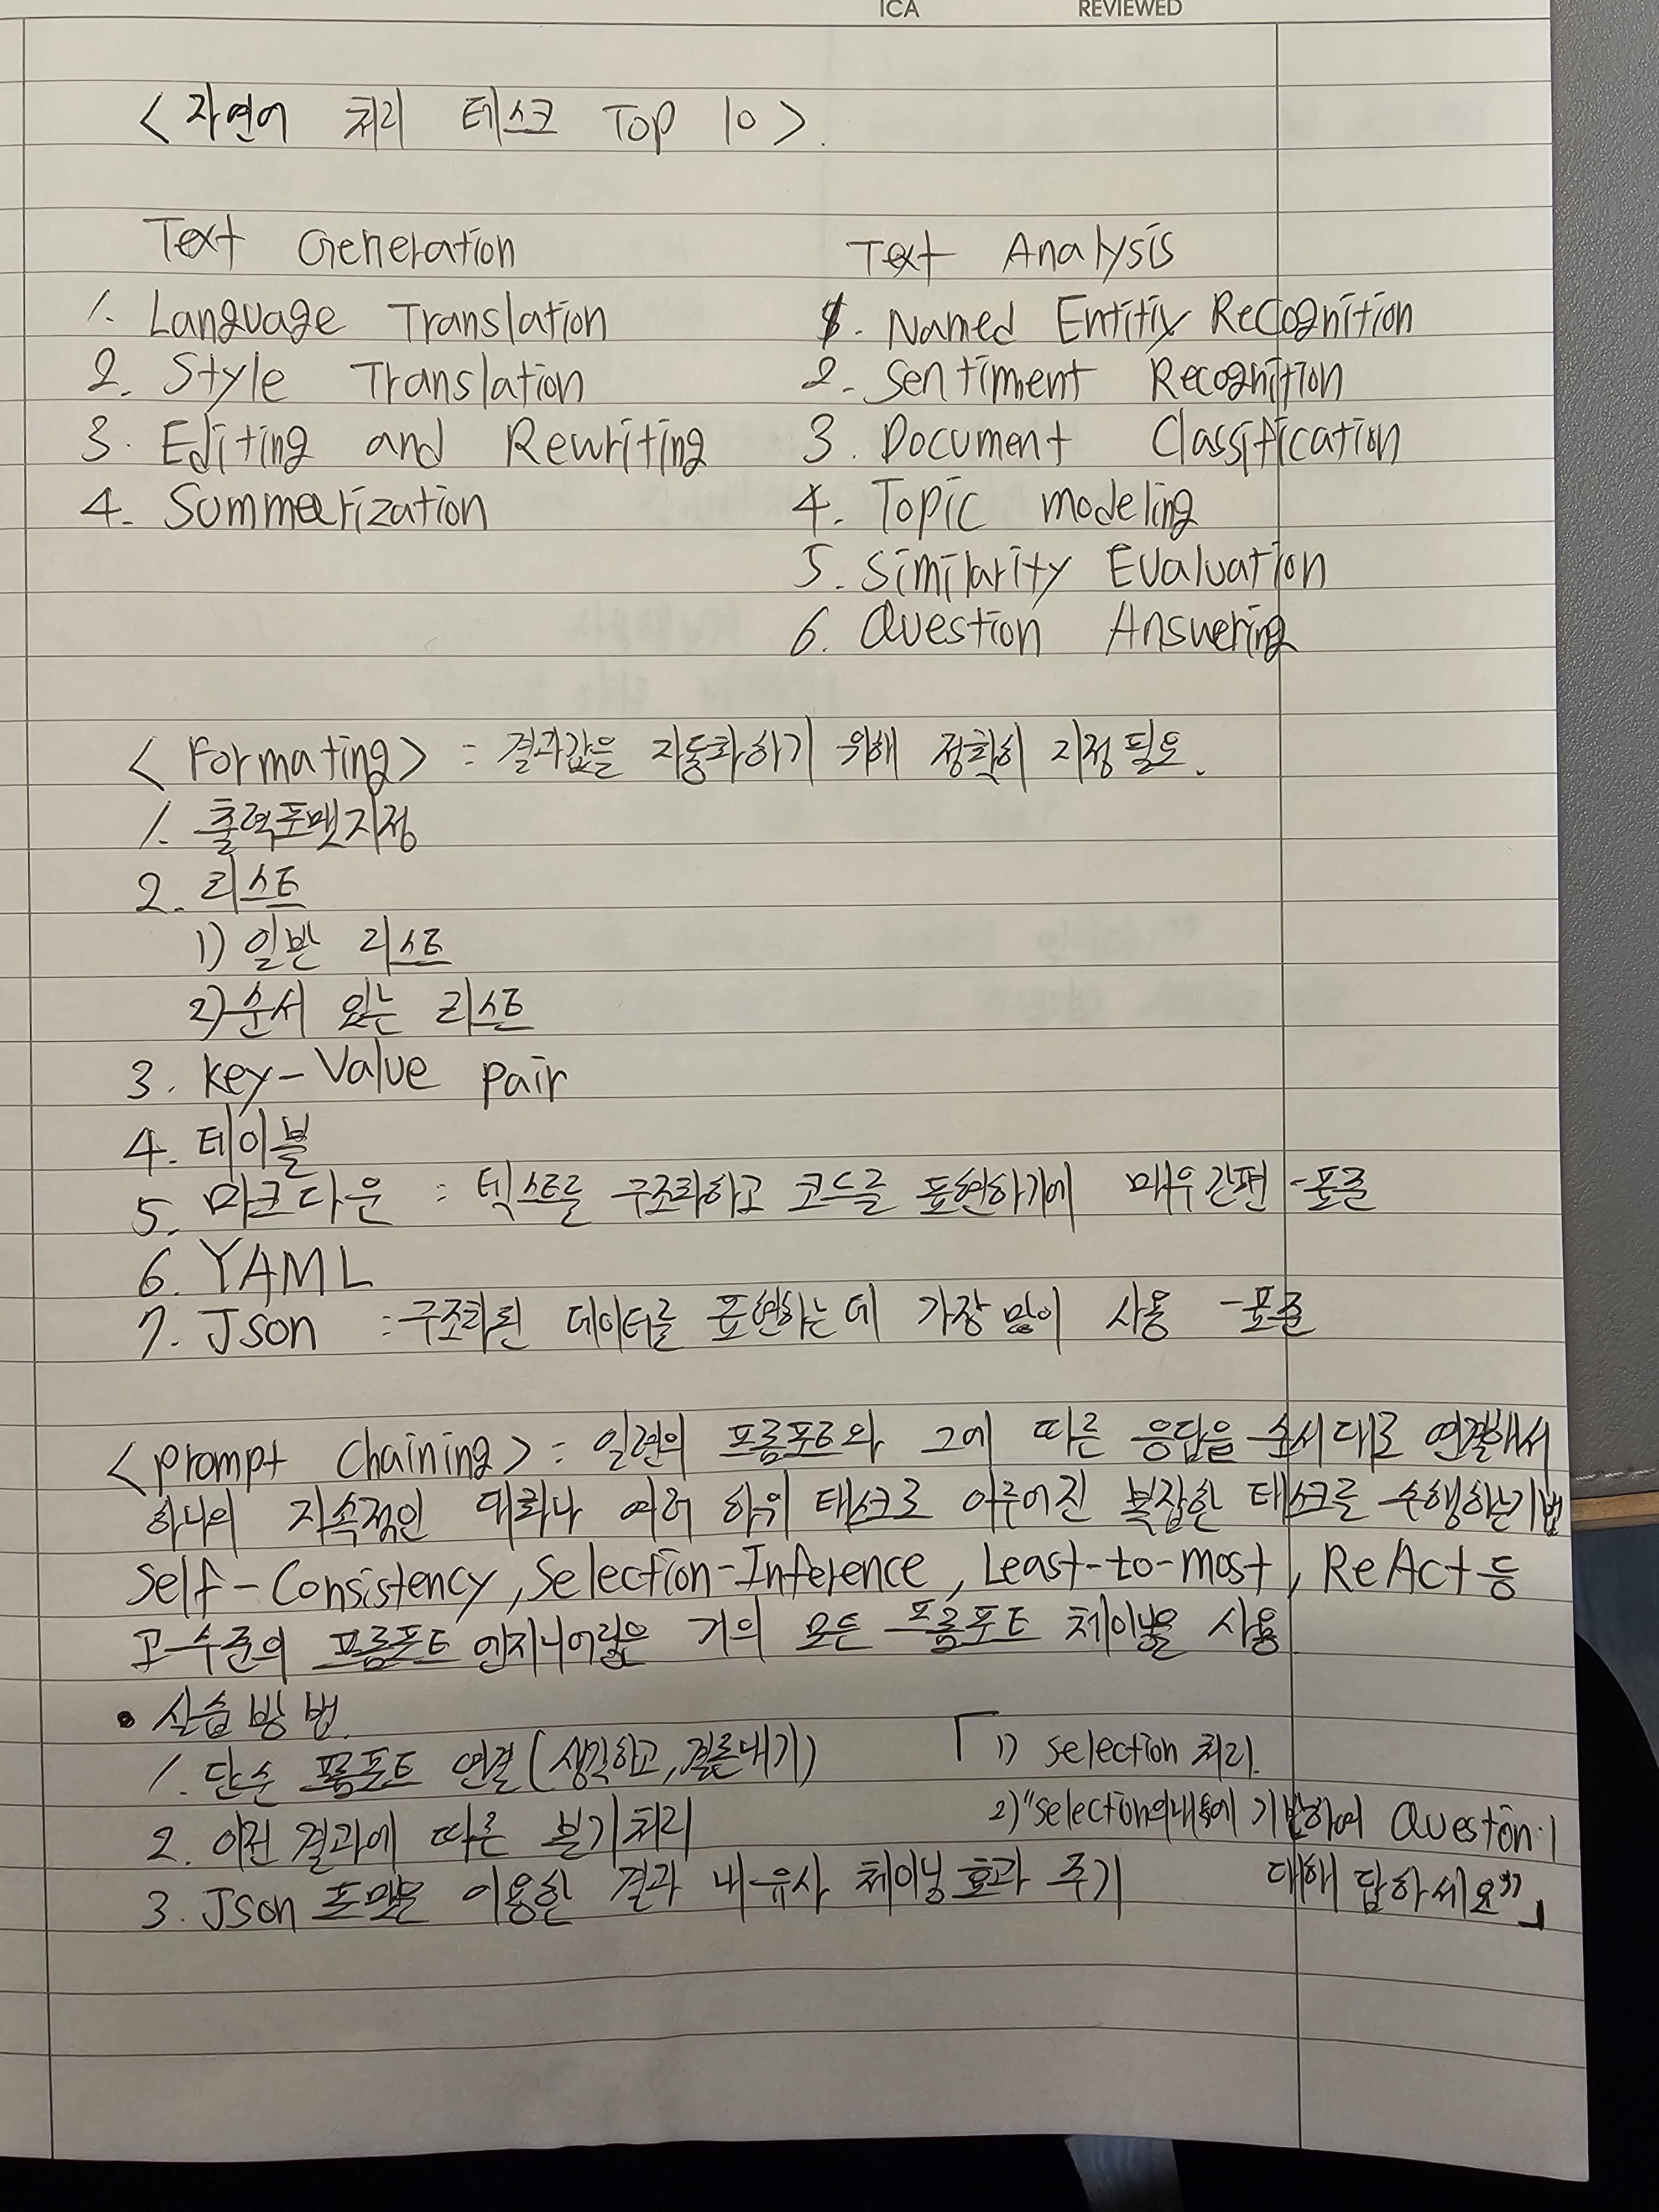 ICA REVIEWED
<자연어 처리 테스크 Top 10>.
Text Generation
1. Language Translation
2. Style Translation
3. Editing and Rewriting
4. Summerization
Text Analysis
1. Named Entity Recognition
2. Sentiment Recognition
3. Document Classification
4. Topic modeling
5. Similarity Evaluation
6. Question Answering
<Formating> : 결과값을 자동화하기 위해 정확히 지정 필요.
1. 출력포맷지정
2. 리스트
1) 일반 리스트
2) 순서 있는 리스트
3. key-Value pair
4. 테이블
5. 마크다운 : 텍스트를 구조화하고 코드를 표현하기에 매우 간편 -표준
6. YAML
7. Json : 구조화된 데이터를 표현하는 데 가장 많이 사용 -표준
<prompt Chaining> : 일련의 프롬포트와 그에 따른 응답을 순서대로 연결해서
하나의 지속적인 대화나 여러 하위 태스크로 이루어진 복잡한 태스크를 수행하는 기법
Self-Consistency, Selection-Inference, Least-to-most, ReAct 등
고수준의 프롬포트 엔지니어링은 거의 모든 프롬포트 체이닝을 사용
• 실습방법.
1. 단순 프롬포트 연결(생각하고, 결론내기)
2. 이전 결과에 따른 분기처리
3. Json 포맷을 이용한 결과 내 유사 체이닝 효과 주기
「1) Selection 처리.
2) "Selection의 내용에 기반하여 Queston.1
대해 답하세요"」